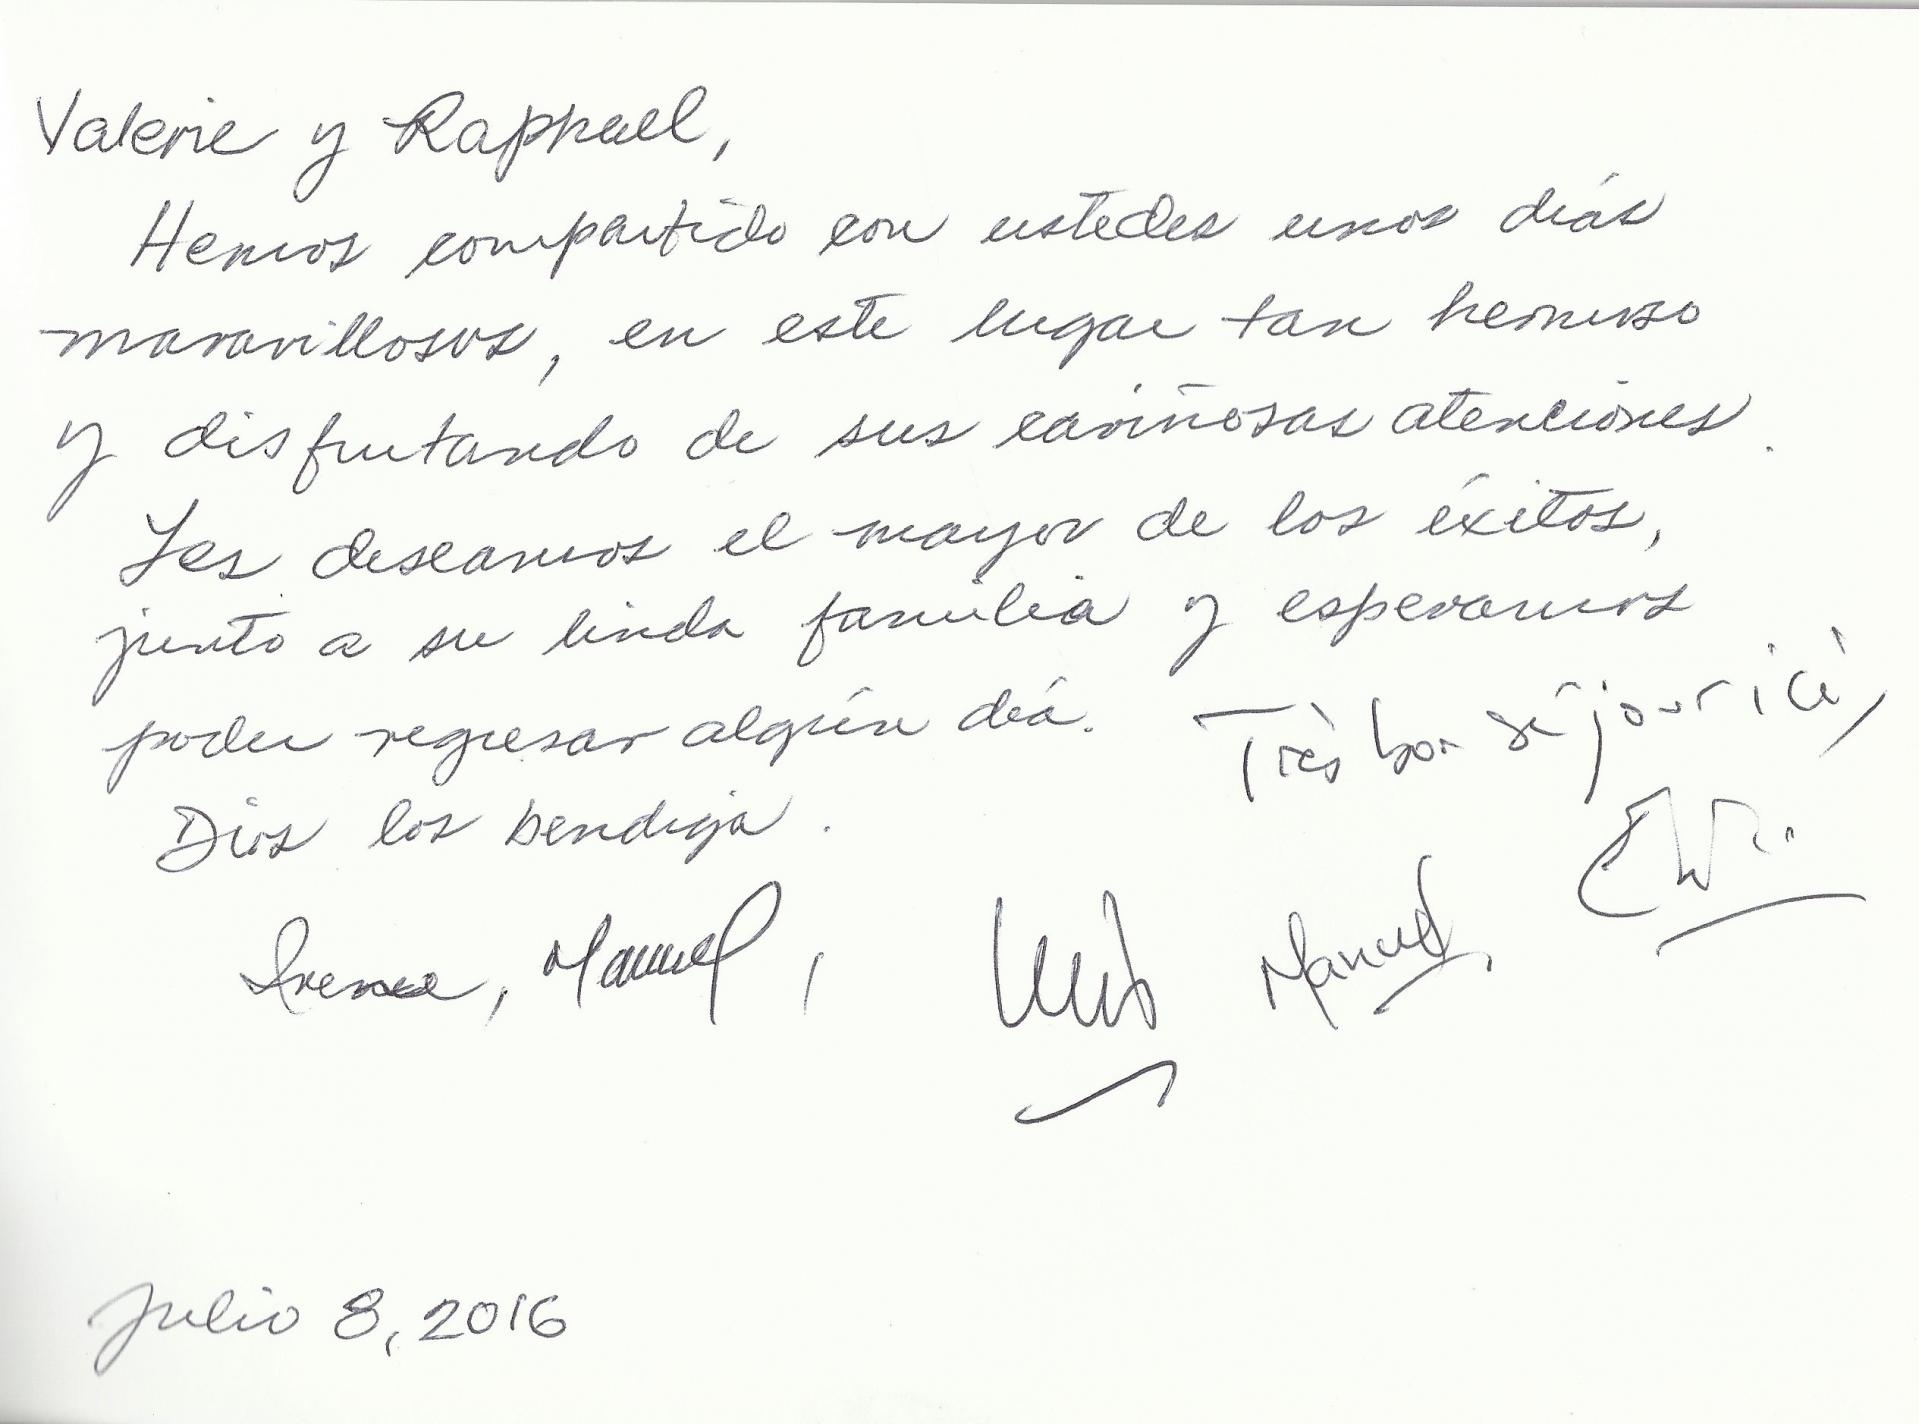 Valerie y Raphael,
Hemos compartido con ustedes unos diás
maravillosos, en este lugar tan hermoso
y disfrutando de sus cariñosas atenciones.
Les deseamos el mayor de los éxitos,
junto a su linda familia y esperamos
poder regresar algún diá.
Très bon séjour ici,
Dios los bendiga.
Irene, Manuel,
Luis
Manuel
Julio 8, 2016